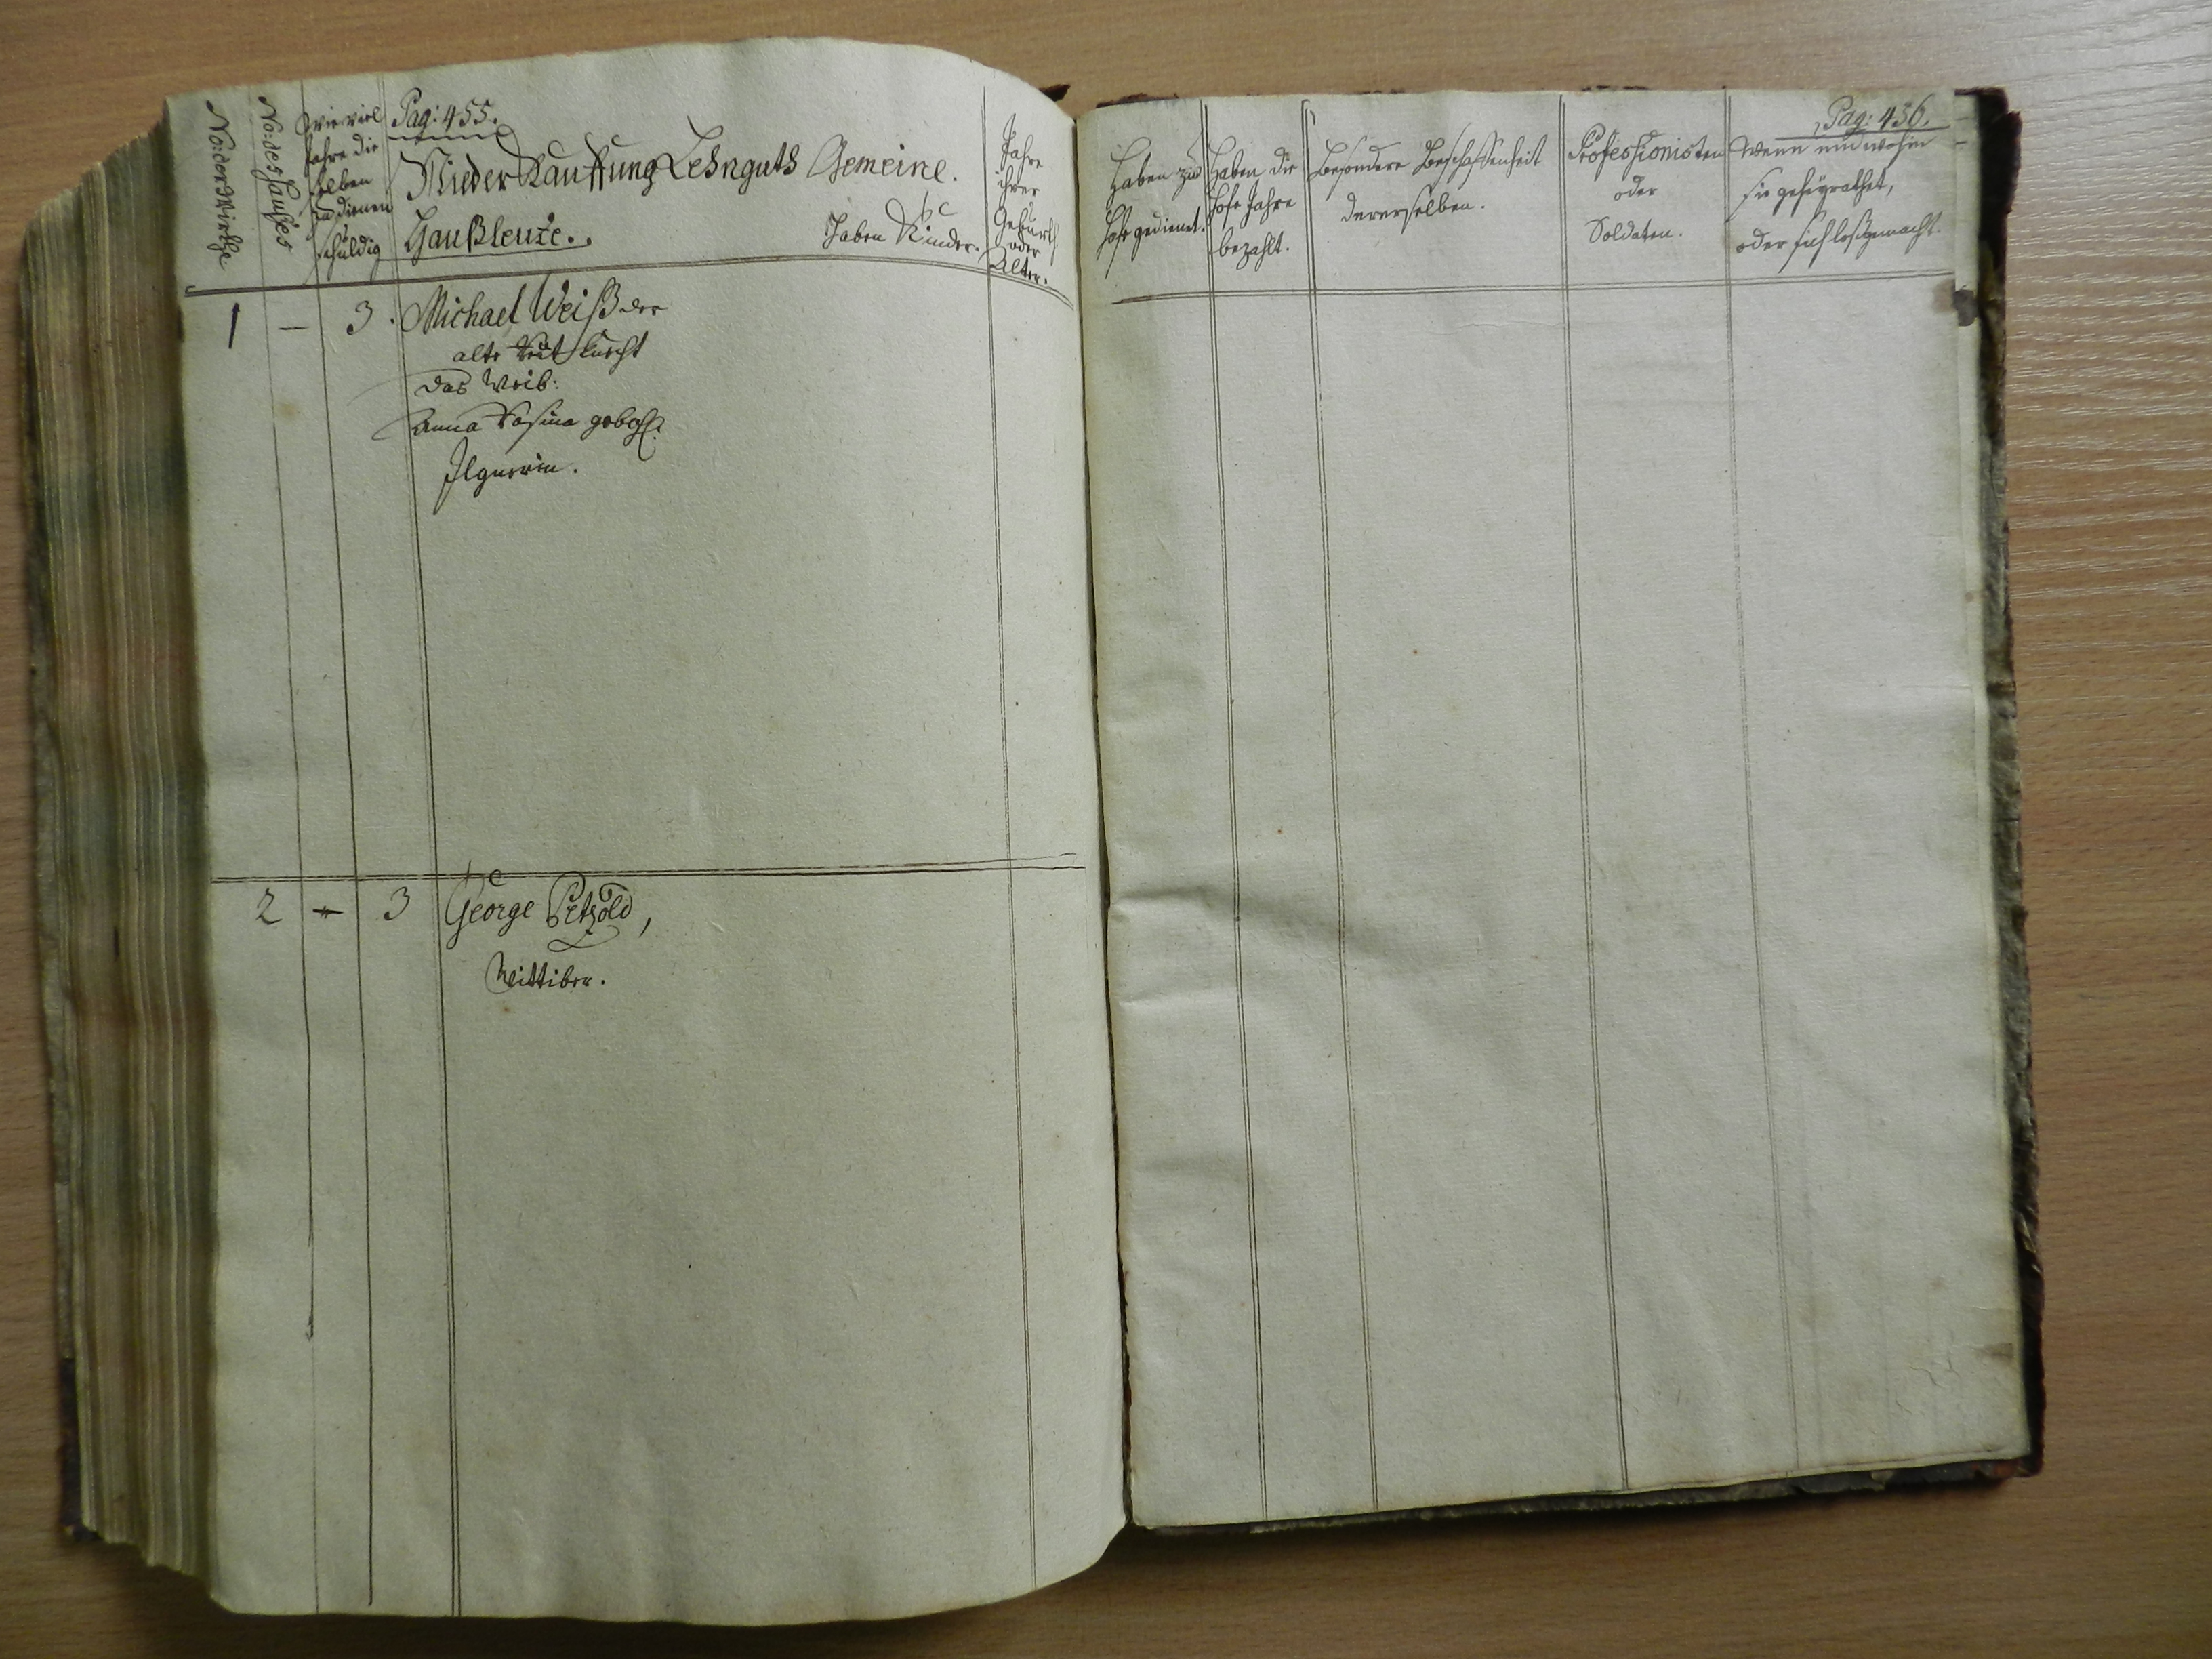 No: der Wirthe
No: des Haußes
Wie viel
Jahre die
selben
zu dienen
schuldig
Pag: 455.
Nieder Kauffung Lehnguths Gemeine.
Haußleute.
Haben Kinder.
Jahre
ihrer
Geburth
oder
Alter.
1 — 3. Michael Weiß der
alte Knecht
das Weib:
Anna Rosina gebohr:
Ilgnerin.
2 — 3 George Petzold,
Wittiber.
Pag: 456.
Haben zu
Hofe gedienet.
Haben die
Hofe Jahre
bezahlt.
Besondere Beschaffenheit
dererselben.
Professionisten
oder
Soldaten.
Wenn und wohin
sie geheyrathet,
oder sich loßgemacht.